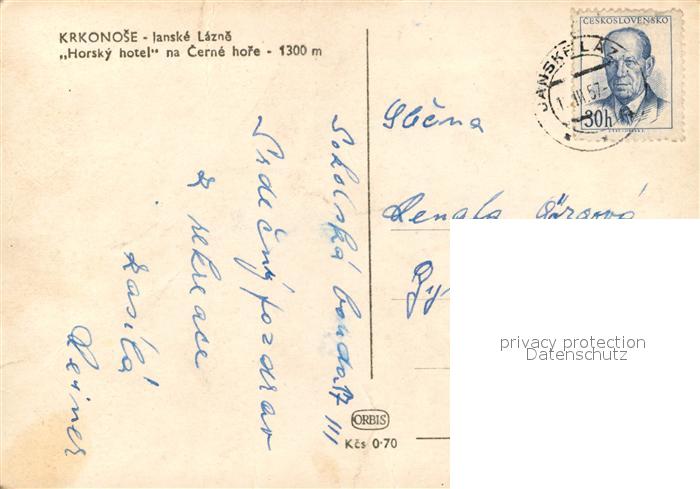 KRKONOŠE - Janské Lázně
„Horský hotel" na Černé hoře - 1300 m
ČESKOSLOVENSKO
30h
JANSKÉ LÁZ
III.57
Slečna
Renata
Sokolská bouda 17 III
Srdečný pozdrav
z rekreace
zasílá
ORBIS
Kčs 0·70
privacy protection
Datenschutz